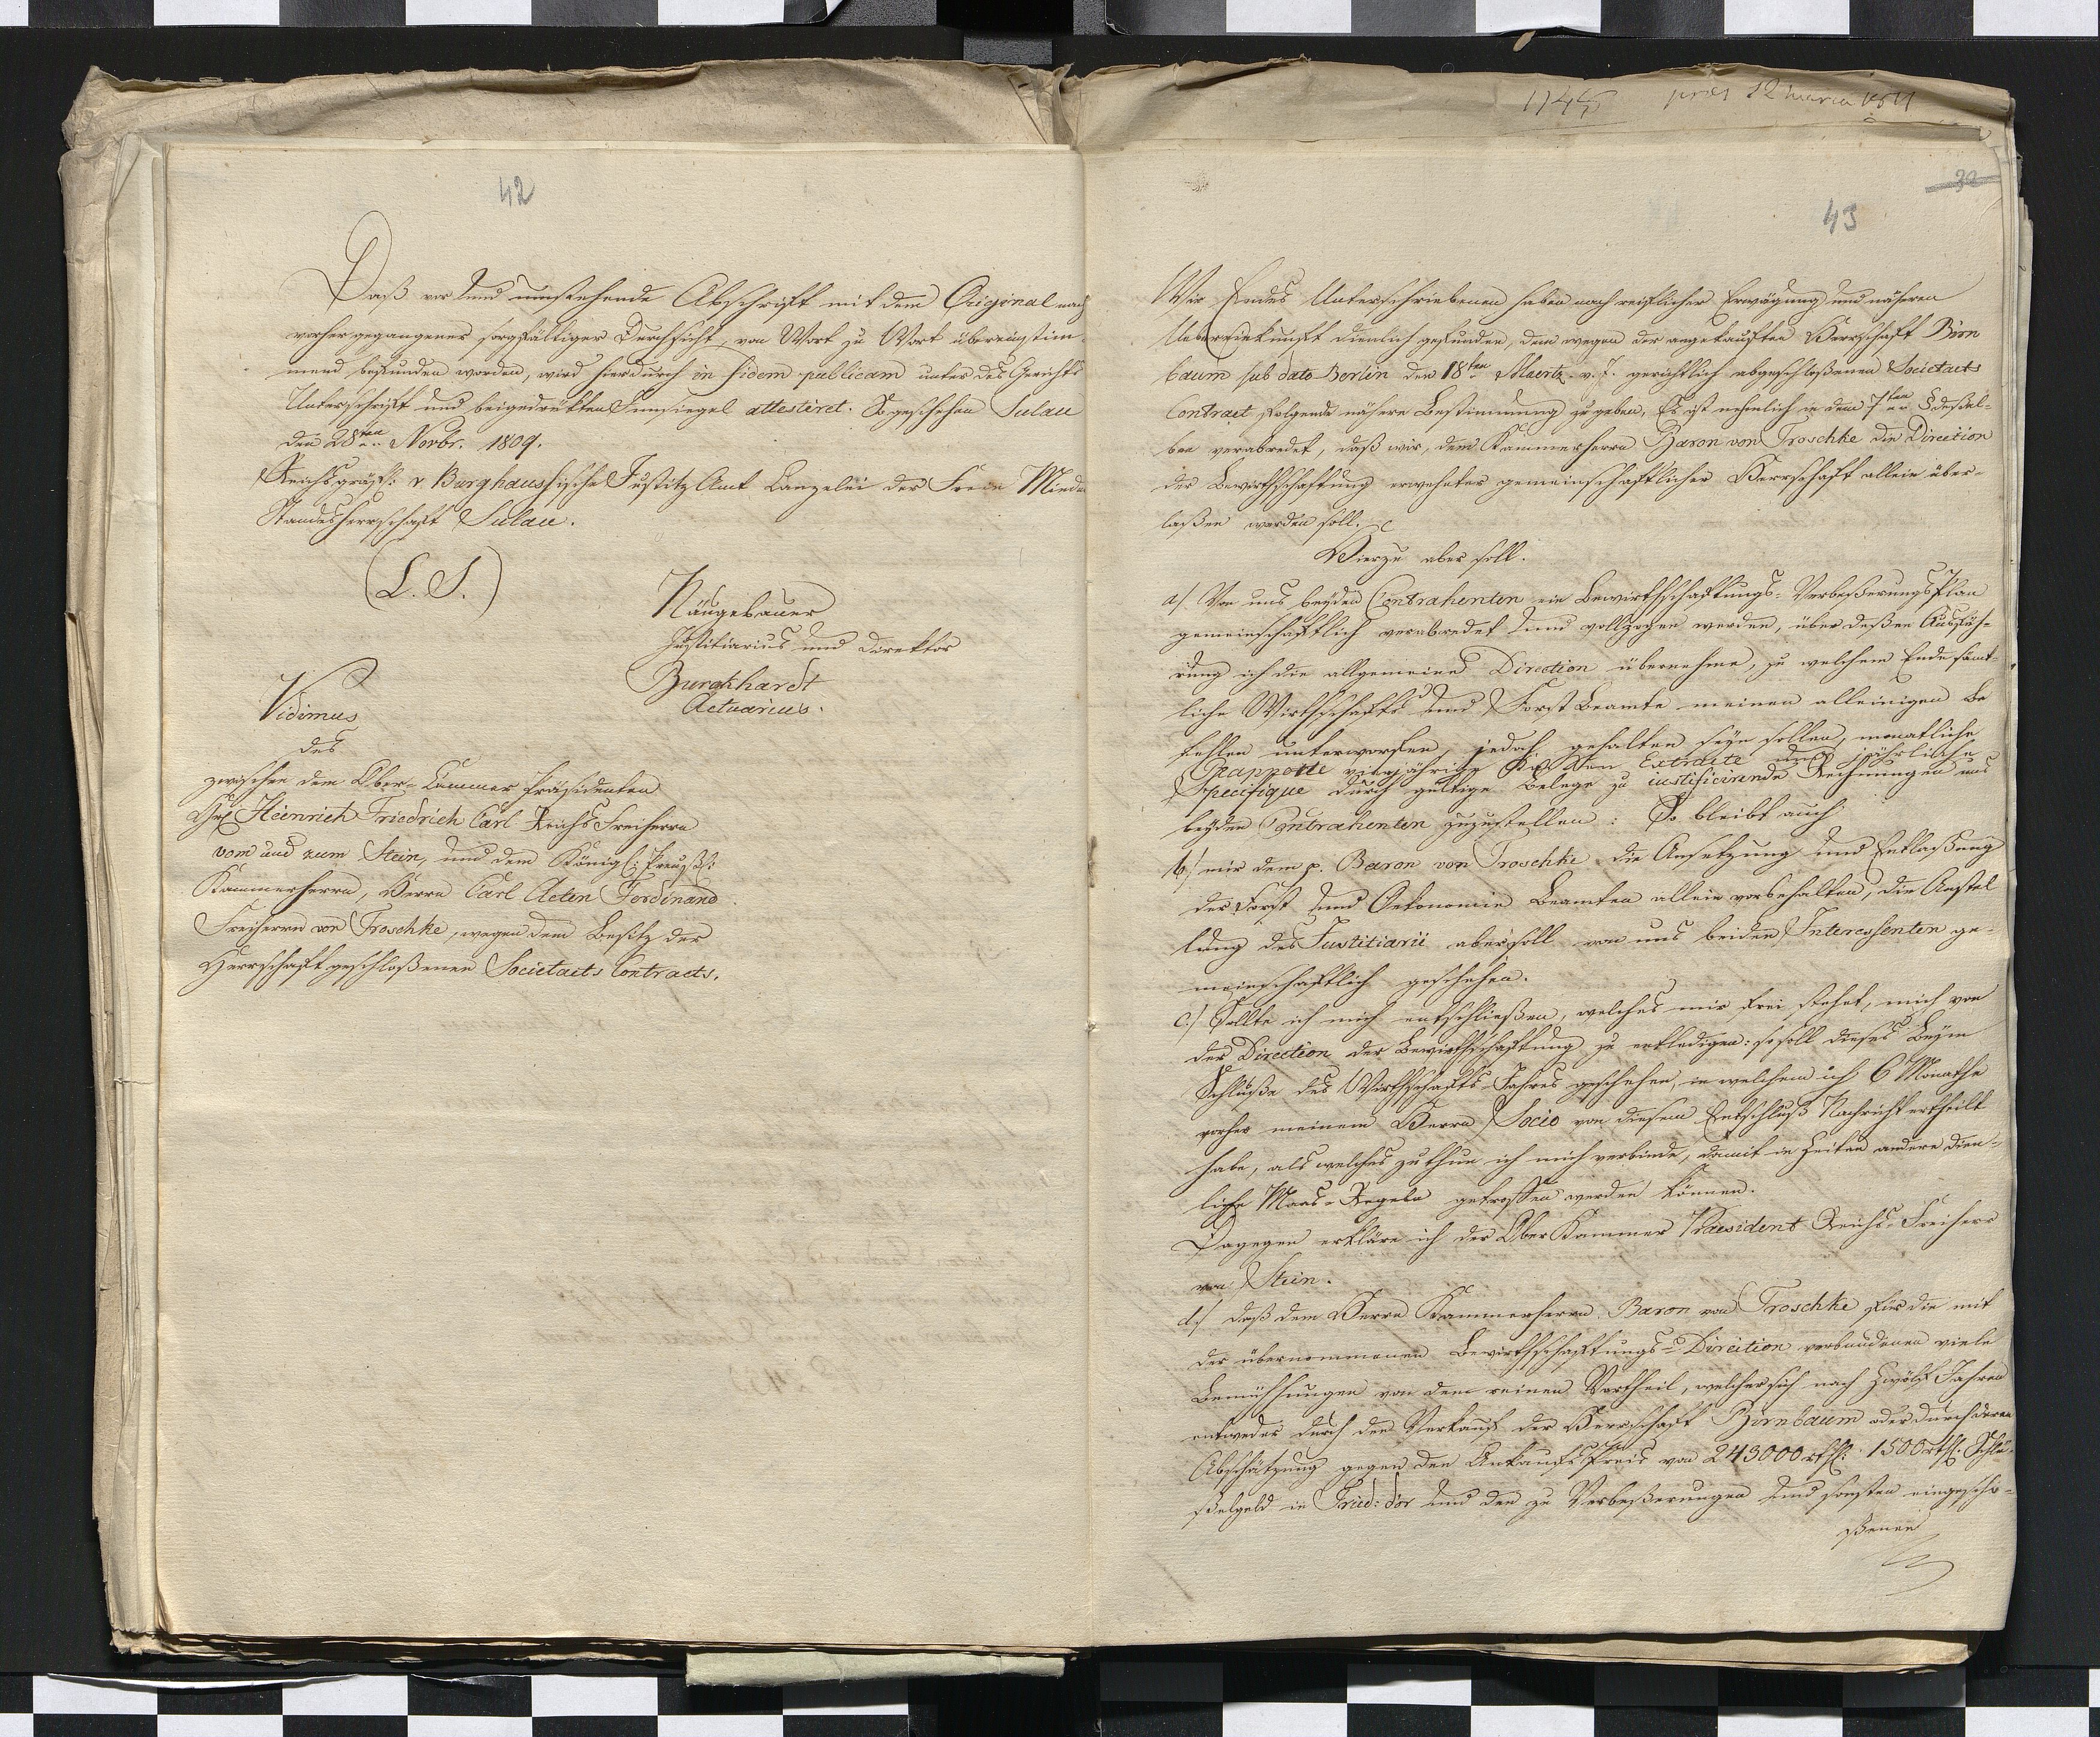 42
Daß vor und umstehende Abschrifft mit dem Original nach
vorhergegangener sorgfältiger Durchsicht, von Wort zu Wort übereinstim-
mend befunden worden, wird hierdurch in fidem publicam unter des Gerichts
Unterschrifft und beigedrukten Innsiegel attestiret. So geschehen Sulau
den 28ten Novbr. 1809.
Reichsgräfl: v Burghaussische Justitz Amt Canzelei der Freien Minder
Standesherrschaft Sulau.
(L. S.)
Näugebauer
Justitiarius und Direktor
Burgkhardt
Actuarius.
Vidimus
des
zwischen dem Ober-Cammer Präsidenten
Heinrich Friedrich Carl Reichs Freiherrn
vom und zum Stein, und dem Königl: Preuß:
Kammerherrn, Herrn Carl Ferdinand
Freiherrn von Troschke, wegen dem Besitz der
Herrschaft geschloßenen Societaets Contracts.
1145 präs 12 1811
32
43
Wir Endes Unterschriebenen haben nach reiflicher Erwägung und näheren
Uebereinkunfft dienlich gefunden, dem wegen der angekauften Herrschaft Birn
baum sub dato Berlin den 18ten Maertz v. J. gerichtlich abgeschloßenen Societaets
Contract folgende nähere Bestimmung zu geben, Es ist nehmlich in dem 7ten § deßel-
ben verabredet, daß mir, dem Kammerherrn Baron von Troschke die Direction
der Bewirthschaftung erwehnter gemeinschaftlicher Herrschaft allein über-
laßen werden soll.
Hierzu aber soll.
a/ Von uns beyden Contrahenten ein Bewirthschaftungs-Verbeßerungs Plan
gemeinschaftlich verabredet und vollzogen werden, über deßen Ausfüh-
rung ich die allgemeine Direction übernehme, zu welchem Ende sämt-
liche Wirthschafts und Forst Beamte meinen alleinigen Be
fehlen unterworfen, jedoch gehalten seyn sollen, monatliche
Rapporte vierjährige Extracte und jährliche
Specifique durch gültige Belege zu iustificirende Rechnungen uns
beyden Contrahenten zuzustellen: So bleibt auch
b/ mir dem p. Baron von Troschke die Ansetzung und Entlaßung
der Forst und Oekonomie Beamten allein vorbehalten, die Anstel
lung des Justitiarii aber soll von uns beiden Interessenten ge-
meinschaftlich geschehen.
c/ Sollte ich mich entschließen, welches mir frei stehet, mich von
der Direction der Bewirthschaftung zu entledigen: so soll dieses beym
Schluße des Wirthschafts-Jahres geschehen, in welchem ich 6 Monathe
vorher meinem Herrn Socio von diesem Entschluß Nachricht ertheilt
habe, als welches zu thun ich mich verbinde, damit in Zeiten andere dien-
liche Maas-Regeln getroffen werden können.
Dagegen erkläre ich der Ober Kammer Praesident Reichs-Freiherr
von Stein.
d/ daß dem Herrn Kammerherrn Baron von Troschke für die mit
der übernommenen Bewirthschaftungs-Direction verbundenen viele
Bemühungen von dem reinen Vortheil, welcher sich nach Zwölf Jahren
entweder durch den Verkauf der Herrschaft Birnbaum oder durch deren
Abschätzung gegen den Ankaufs Preis von 243000 rthl: 1500 rthl: Schlü-
ßelgeld in Fried: dor und den zu Verbeßerungen und sonsten eingescho-
ßenen